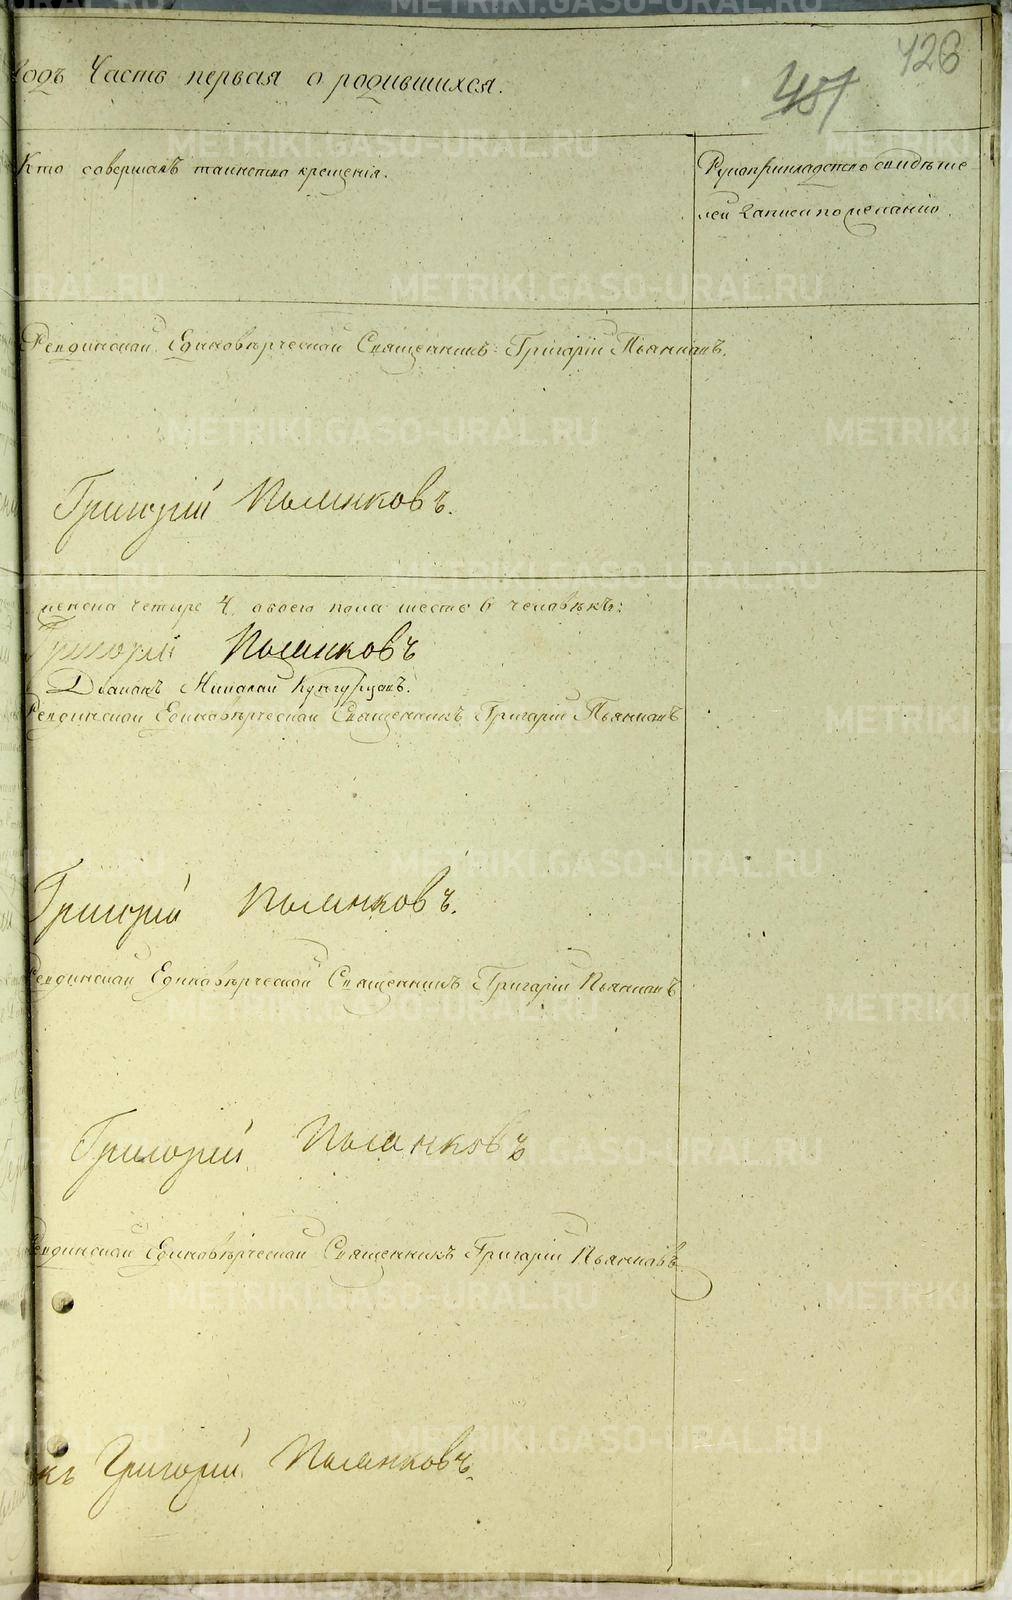 годъ Часть первая о родившихся.
426
481
Кто совершалъ таинство крещенія.
Рукоприкладство свидѣте
лей записи по желанію.
Ревдинской Единовѣрческой Священникъ Григорій Пьянковъ.
Григорій Пьянковъ.
женска четыре 4, обоего пола шесть 6 человѣкъ:
Григорій Пьянковъ
Дьяконъ Николай Кунгурцовъ.
Ревдинской Единовѣрческой Священникъ Григорій Пьянковъ
Григорій Пьянковъ.
Ревдинской Единовѣрческой Священникъ Григорій Пьянковъ
Григорій Пьянковъ
Ревдинской Единовѣрческой Священникъ Григорій Пьянковъ
къ Григорій Пьянковъ.
METRIKI.GASO-URAL.RU